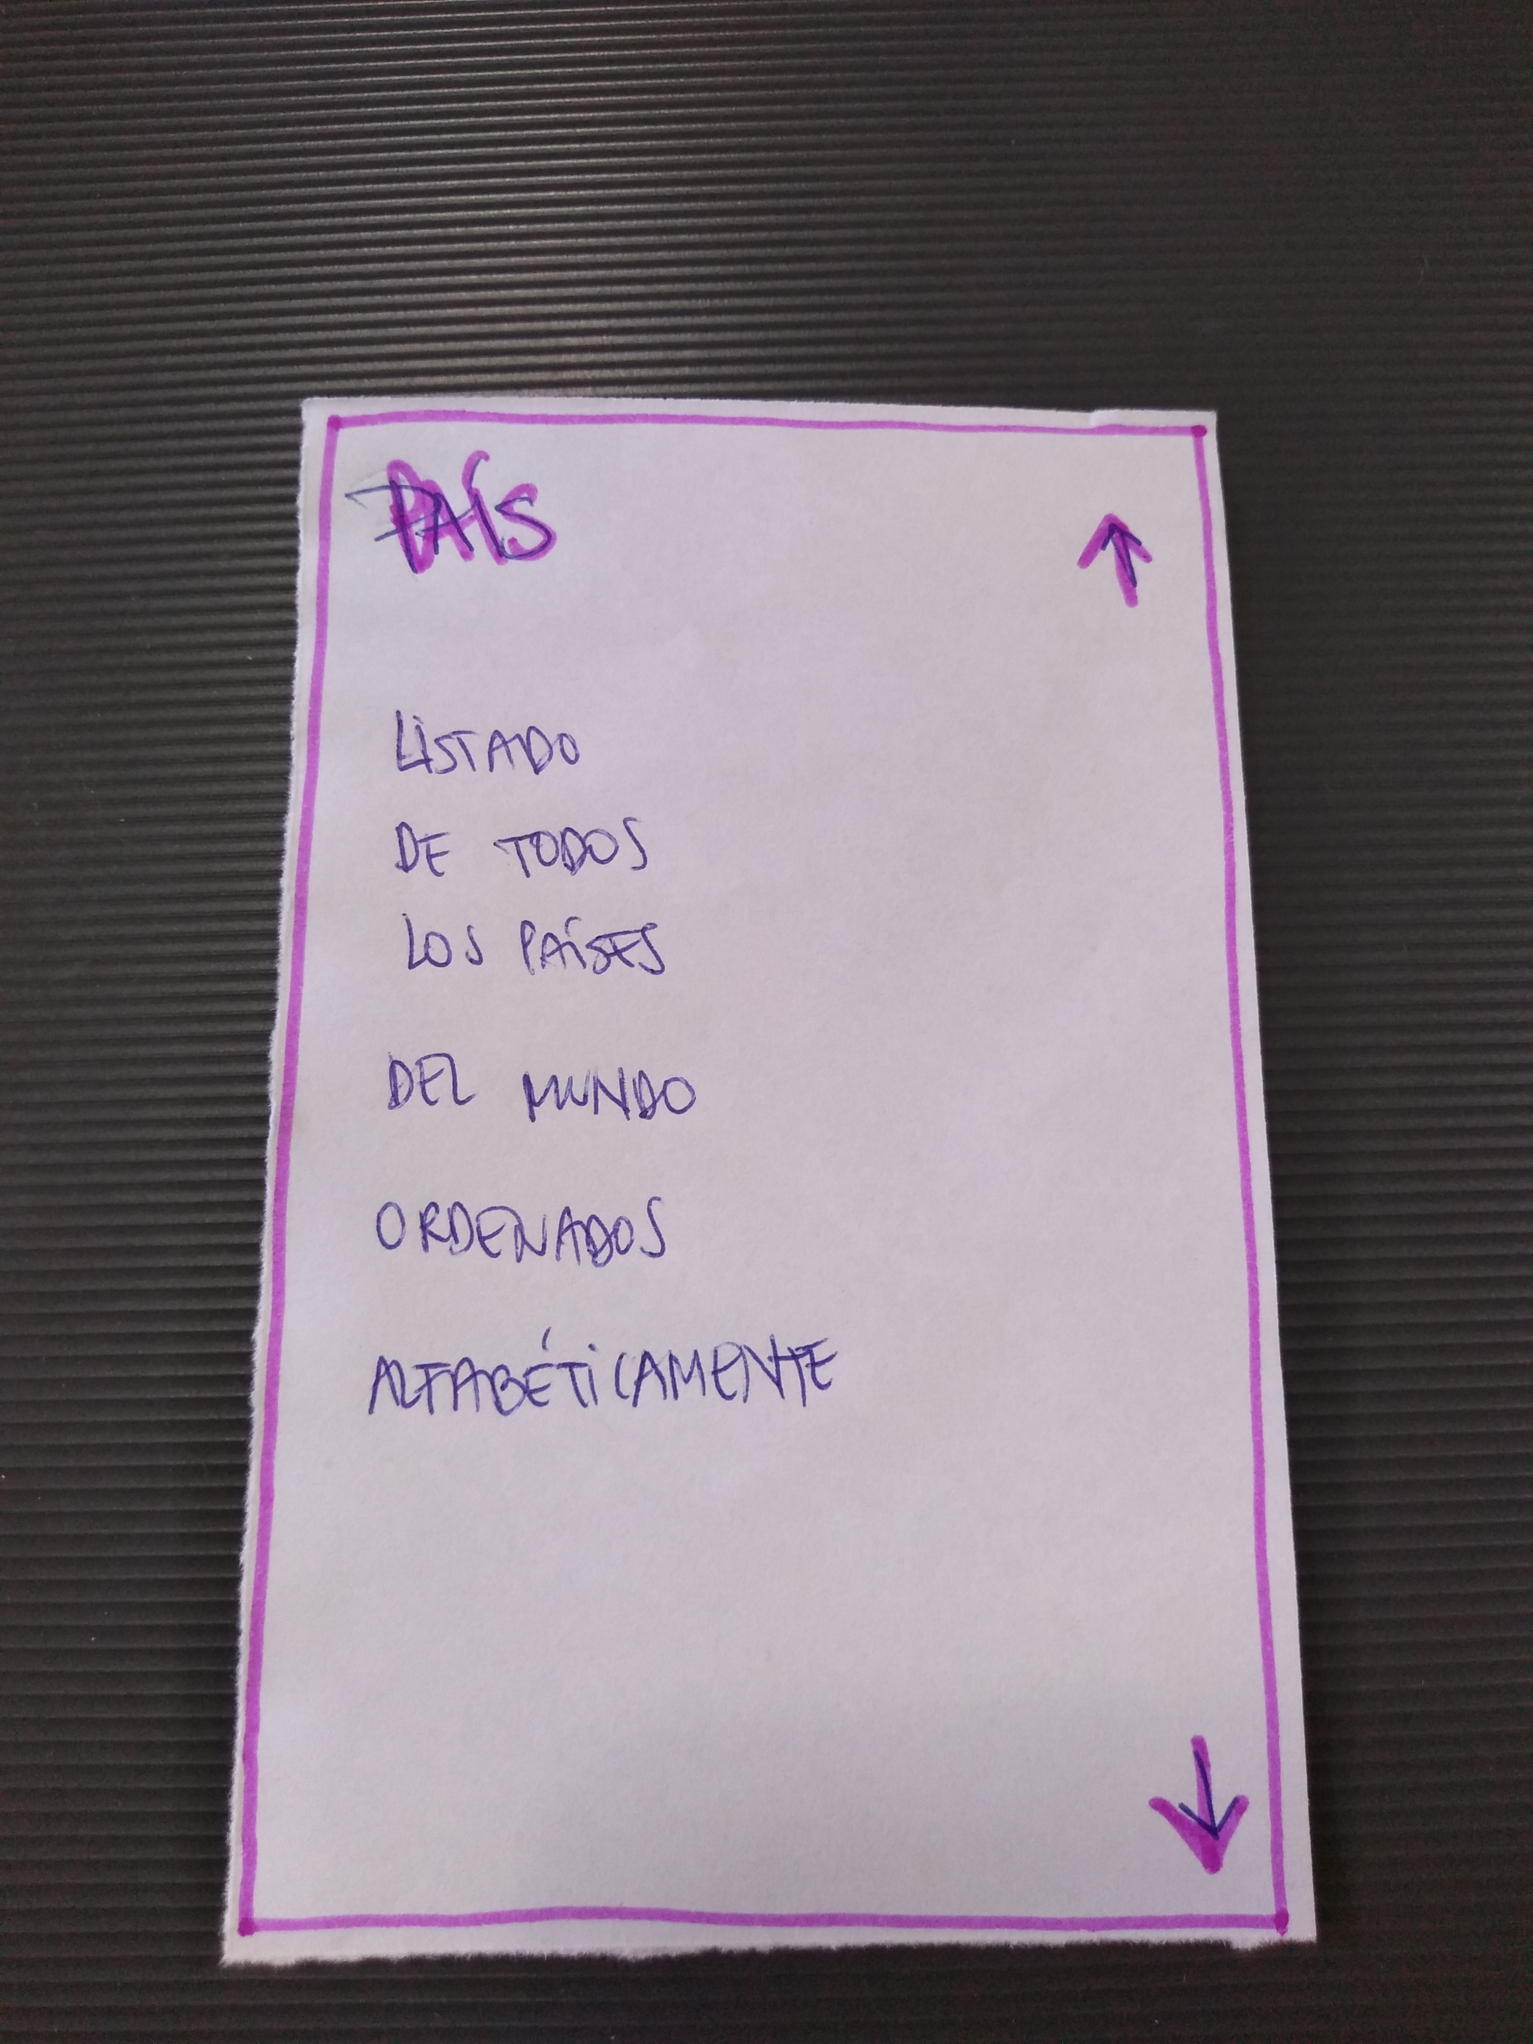 PAÍS
LISTADO
DE TODOS
LOS PAÍSES
DEL MUNDO
ORDENADOS
ALFABÉTICAMENTE